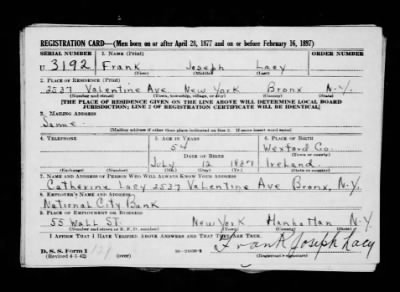 REGISTRATION CARD—(Men born on or after April 28, 1877 and on or before February 16, 1897)
SERIAL NUMBER 1. NAME (Print) ORDER NUMBER
U 3192 Frank Joseph Lacy
(First) (Middle) (Last)
2. PLACE OF RESIDENCE (Print)
2537 Valentine Ave New York Bronx N.Y.
(Number and street) (Town, township, village, or city) (County) (State)
[THE PLACE OF RESIDENCE GIVEN ON THE LINE ABOVE WILL DETERMINE LOCAL BOARD
JURISDICTION; LINE 2 OF REGISTRATION CERTIFICATE WILL BE IDENTICAL]
3. MAILING ADDRESS
Same
[Mailing address if other than place indicated on line 2. If same insert word same]
4. TELEPHONE 5. AGE IN YEARS 6. PLACE OF BIRTH
54 Wexford Co.
DATE OF BIRTH (Town or county)
July 12 1887 Ireland
(Mo.) (Day) (Yr.) (State or country)
7. NAME AND ADDRESS OF PERSON WHO WILL ALWAYS KNOW YOUR ADDRESS
Catherine Lacy 2537 Valentine Ave Bronx, N.Y.
8. EMPLOYER'S NAME AND ADDRESS
National City Bank
9. PLACE OF EMPLOYMENT OR BUSINESS
55 Wall St. New York Manhattan N.Y.
(Number and street or R. F. D. number) (Town) (County) (State)
I AFFIRM THAT I HAVE VERIFIED ABOVE ANSWERS AND THAT THEY ARE TRUE.
Frank Joseph Lacy
D. S. S. Form 1
(Revised 4-1-42) (over) (Registrant's signature)